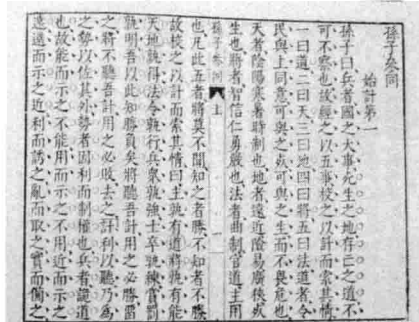 孫子叅同
始計第一
孫子曰兵者國之大事死生之地存亡之道不
可不察也故經之以五事校之以計而索其情
一曰道二曰天三曰地四曰將五曰法道者令
民與上同意可與之死可與之生而不畏危也
天者陰陽寒暑時制也地者遠近險易廣狹死
生也將者智信仁勇嚴也法者曲制官道主用
也凡此五者將莫不聞知之者勝不知者不勝
孫子叅同 上
故校之以計而索其情曰主孰有道將孰有能
天地孰得法令孰行兵衆孰強士卒孰練賞罰
孰明吾以此知勝負矣將聽吾計用之必勝留
之將不聽吾計用之必敗去之計利以聽乃爲
之勢以佐其外勢者因利而制權也兵者詭道
也故能而示之不能用而示之不用近而示之
遠遠而示之近利而誘之亂而取之實而備之